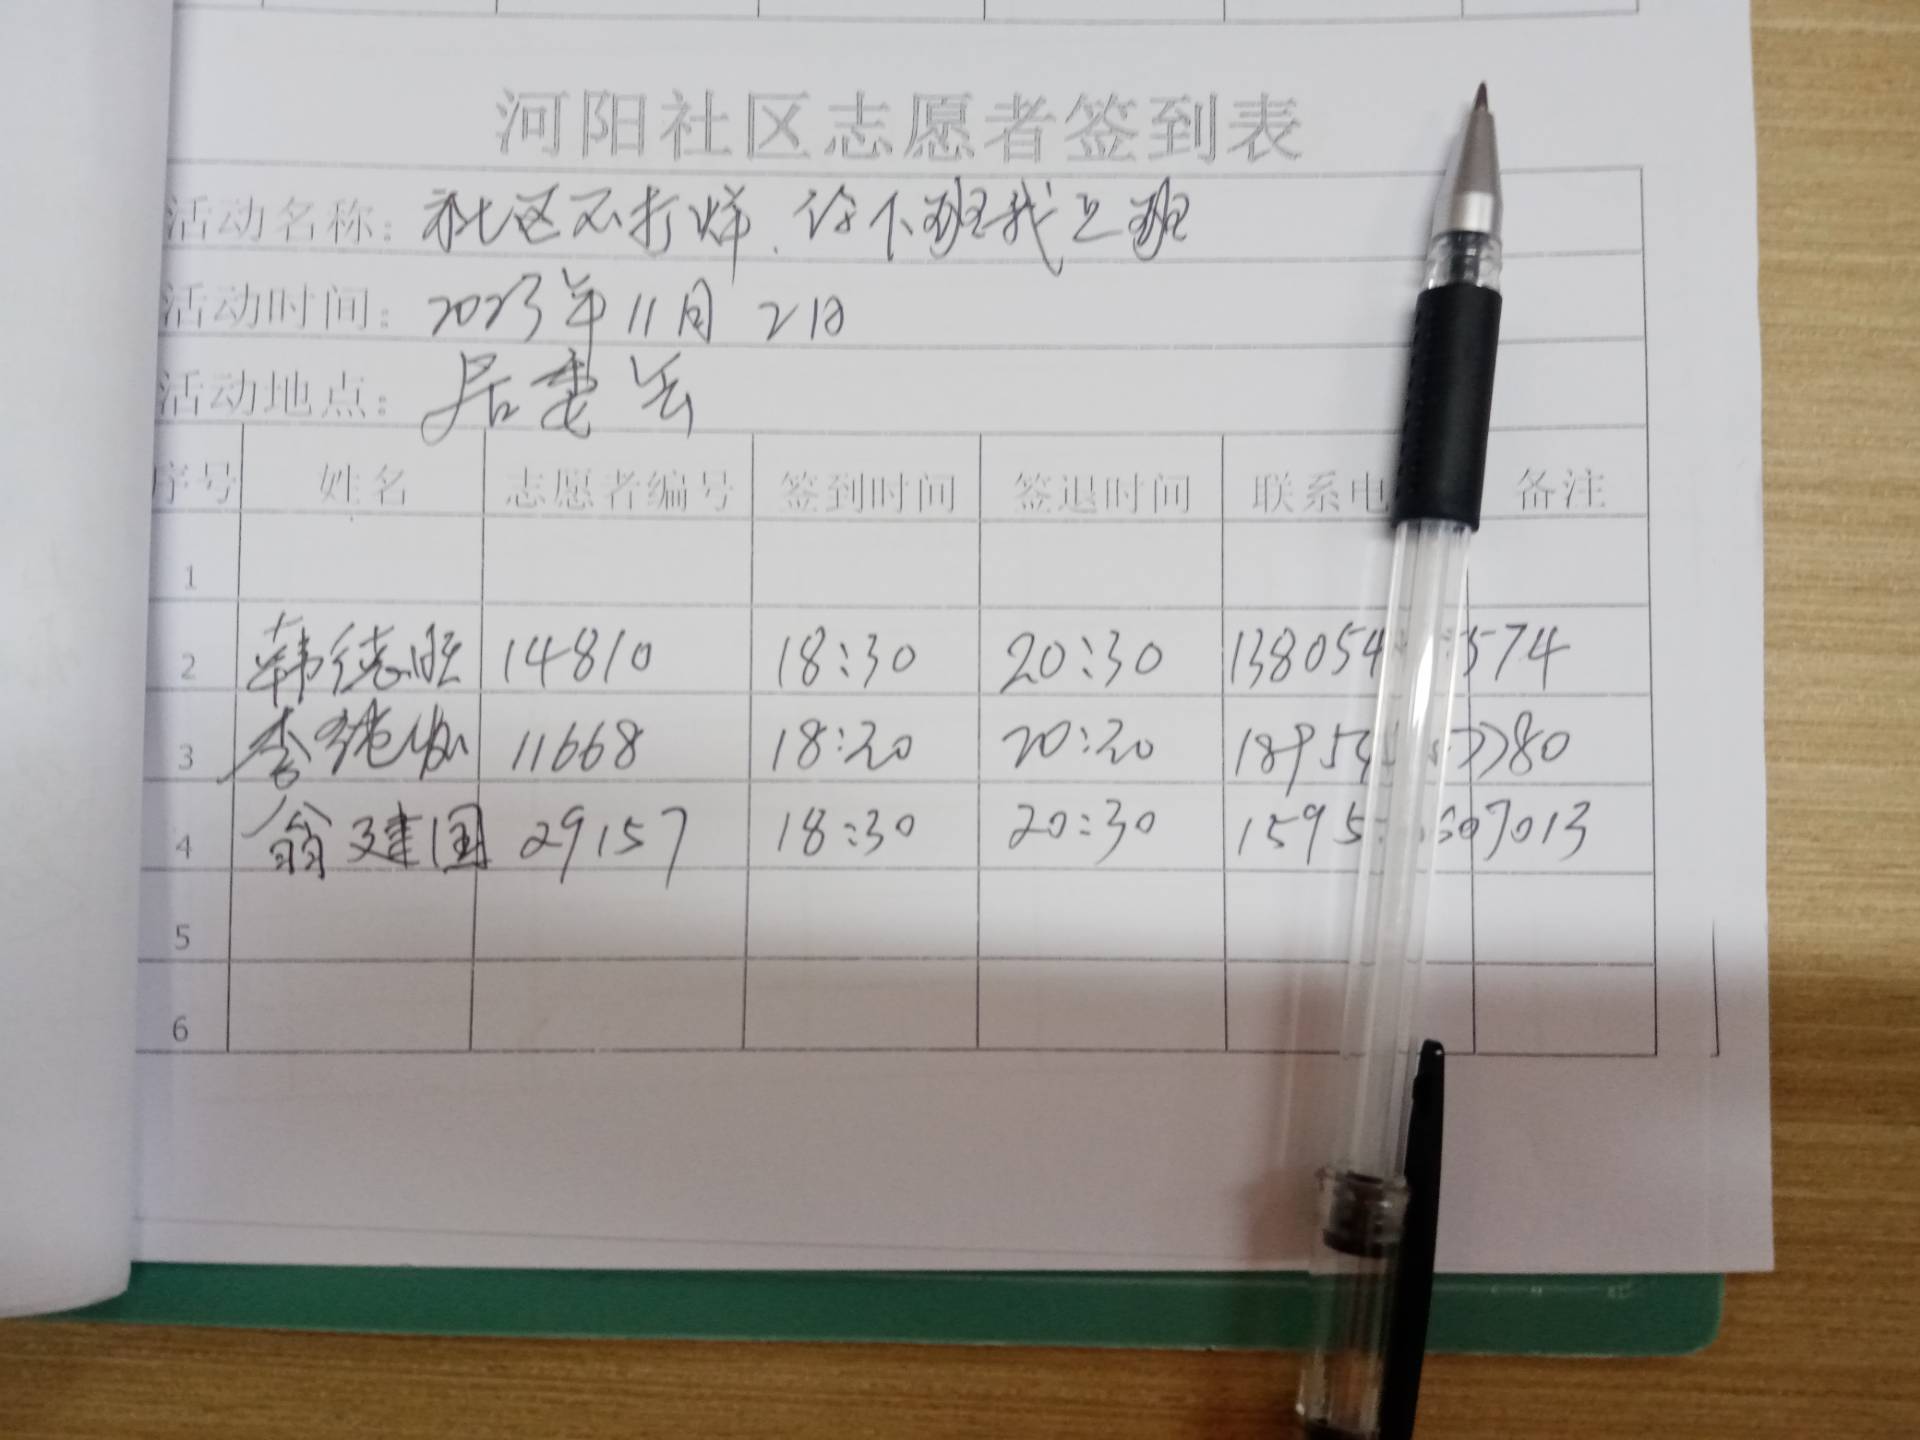 河阳社区志愿者签到表
活动名称: 社区不打烊、你下班我上班
活动时间: 2023年11月21日
活动地点: 居委会
序号 姓名 志愿者编号 签到时间 签退时间 联系电 备注
1
2 韩德旺 14810 18:30 20:30 138054 574
3 李 11668 18:20 20:20 1895 780
4 翁建国 29157 18:30 20:30 1595 07013
5
6